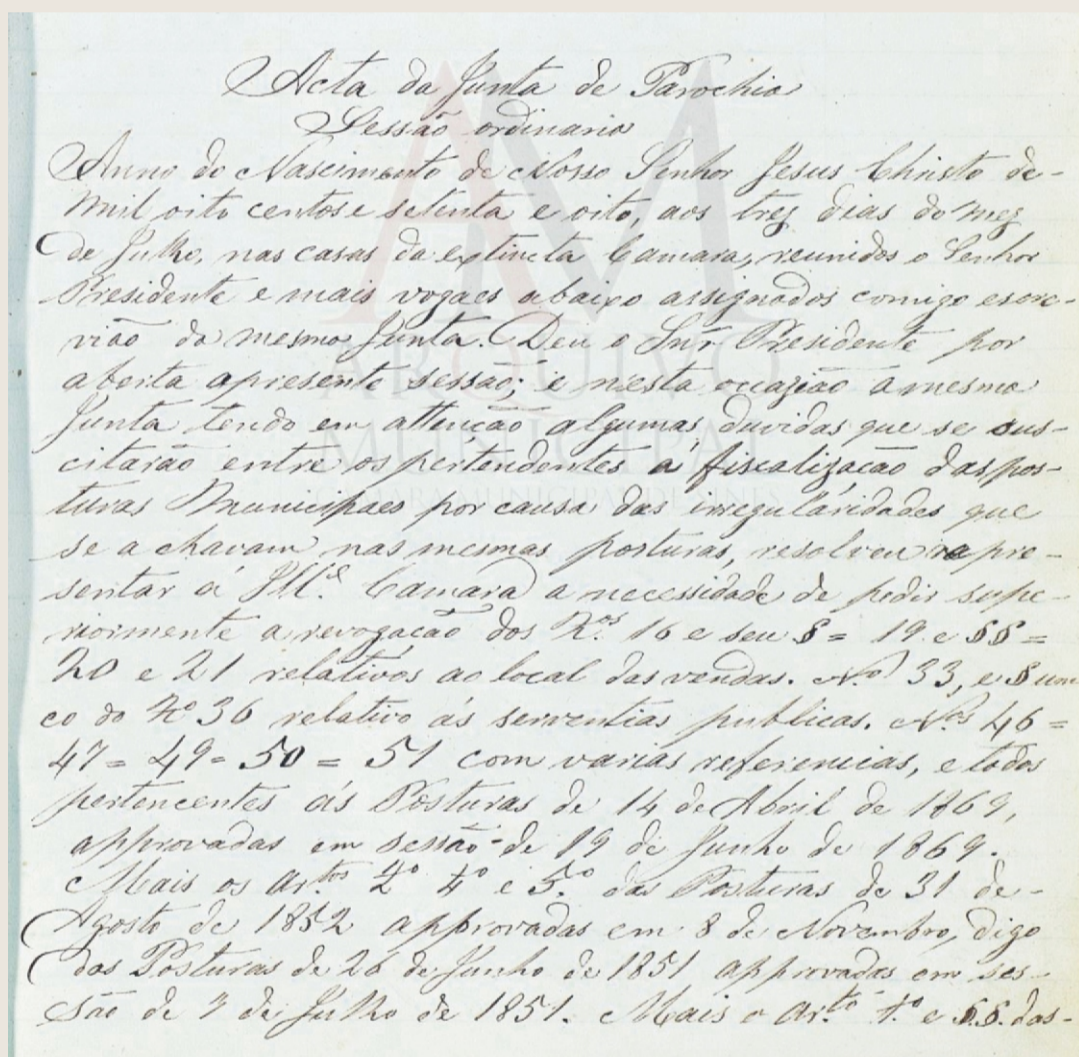 Acta da Junta de Parochia
Sessão ordinaria
Anno do Nascimento de Nosso Senhor Jesus Christo de-
mil oito centos e setenta e oito, aos trez dias do mez
de Julho, nas casas da extincta Camara, reunidos o Senhor
Presidente e mais vogaes abaixo assignados comigo escre-
vião da mesma Junta. Deu o Snr. Presidente por
aberta apresente sessão; e n'esta occazião a mesma
Junta tendo em attenção algumas duvidas que se sus-
citarão entre os pertendentes á fiscalização das pos-
turas Municipaes por causa das irregularidades que
se a chavam nas mesmas posturas, resolveu repre-
sentar á Ill.ª Camara a necessidade de pedir supe-
riormente a revogação dos N.ºs 16 e seu § = 19 e §§ =
20 e 21 relativos ao local das vendas. N.º 33, e § uni
co do Nº 36 relativo ás serventias publicas. N.ºs 46 =
47 = 49 = 50 = 51 com varias referencias, e todos
pertencentes ás Posturas de 14 de Abril de 1869,
approvadas em sessão de 19 de Junho de 1869.
Mais os Ar.tos 2º 4º e 5.º das Posturas de 31 de-
Agosto de 1852 approvadas em 8 de Novembro, digo
das Posturas de 26 de Junho de 1851 approvadas em ses-
são de 7 de Julho de 1851. Mais o Ar.to 1.º e §.§. das-
ARQUIVO
MUNICIPAL
CÂMARA MUNICIPAL DE SINES